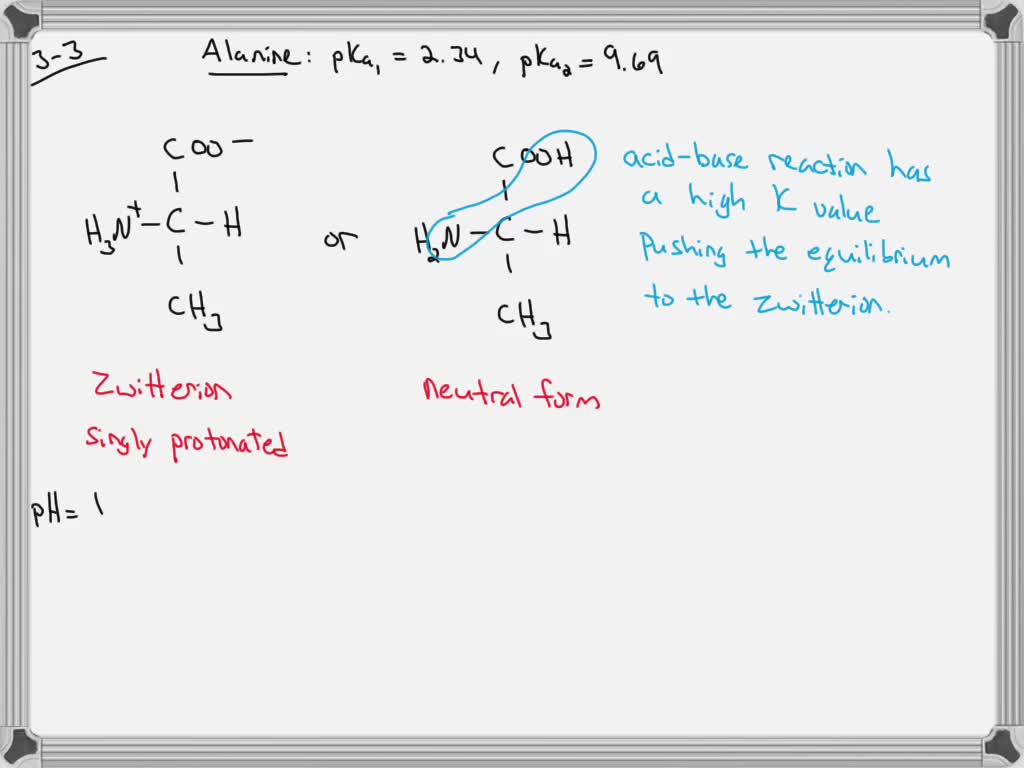 3-3
Alanine: pKa₁ = 2.34, pKa₂ = 9.69
COO⁻
H₃N⁺-C-H
CH₃
or
COOH
H₂N-C-H
CH₃
acid-base reaction has
a high K value
pushing the equilibrium
to the zwitterion.
Zwitterion
singly protonated
neutral form
pH= 1